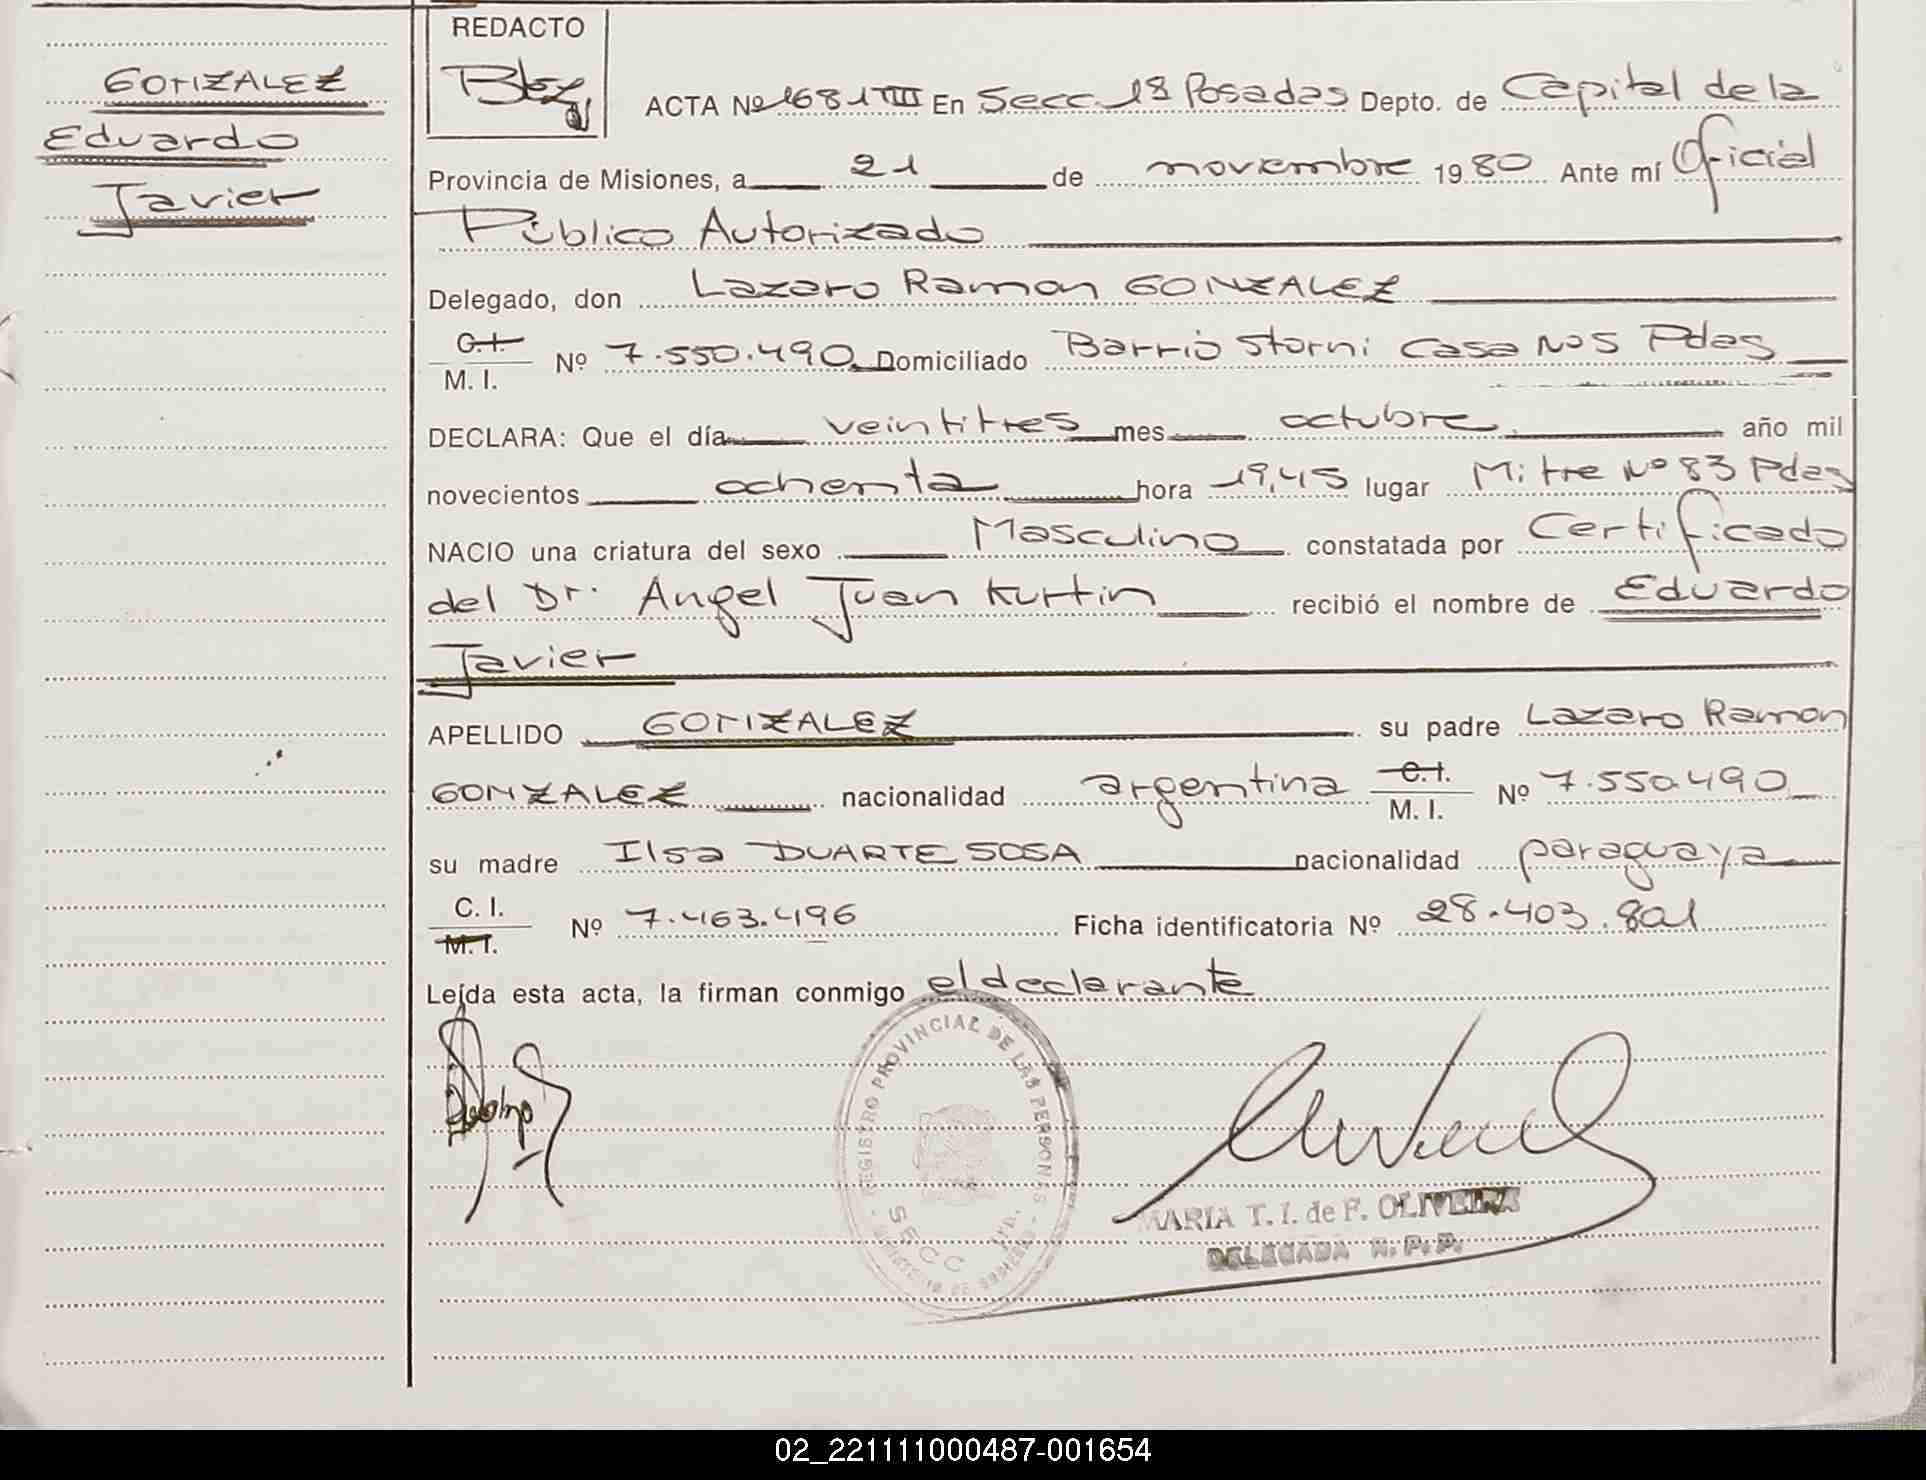 GONZALEZ
Eduardo
Javier
REDACTO
ACTA Nº 1681 VIII En Secc. 1ª Posadas Depto. de Capital de la
Provincia de Misiones, a 21 de noviembre 1980 Ante mí Oficial
Público Autorizado
Delegado, don Lazaro Ramon GONZALEZ
C.I.
M. I. Nº 7.550.490 Domiciliado Barrio Storni Casa Nº5 Pdas
DECLARA: Que el día veintitres mes octubre año mil
novecientos ochenta hora 19,45 lugar Mitre Nº 83 Pdas
NACIO una criatura del sexo Masculino constatada por Certificado
del Dr. Angel Juan Kurtin recibió el nombre de Eduardo
Javier
APELLIDO GONZALEZ su padre Lazaro Ramon
GONZALEZ nacionalidad argentina C.I.
M. I. Nº 7.550.490
su madre Ilsa DUARTE SOSA nacionalidad paraguaya
C. I.
M. I. Nº 7.463.496 Ficha identificatoria Nº 28.403.801
Leída esta acta, la firman conmigo el declarante
REGISTRO PROVINCIAL DE LAS PERSONAS
SECC
MARIA T. I. de F. OLIVEIRA
DELEGADA R. P. P.
02_221111000487-001654